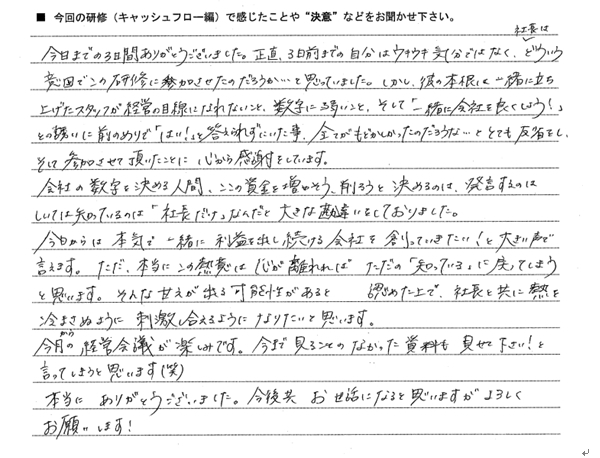 ■ 今回の研修（キャッシュフロー編）で感じたことや“決意”などをお聞かせ下さい。
社長は
今日までの3日間ありがとうございました。正直、3日前までの自分はウキウキ気分ではなく、どういう
意図でこの研修に参加させたのだろうか…と思っていました。しかし、彼の本根は一緒に立ち
上げたスタッフが経営の目線になれないこと、数字に弱いこと、そして「一緒に会社を良くしよう！」
との誘いに前のめりで「はい！」と答えられずにいた事、全てがもどかしかったのだろうな…ととても反省をし、
そして参加させて頂いたことに心から感謝をしています。
会社の数字を決める人間、ここの資金を増やそう、削ろうと決めるのは、発言するのは
しいては知っているのは「社長だけ」なんだと大きな勘違いをしておりました。
今日からは本気で一緒に利益を出し続ける会社を創っていきたい！と大きい声で
言えます。ただ、本当にこの熱意は心が離れれば ただの「知っている」に戻ってしまう
と思います。そんな甘えが出る可能性があると 認めた上で、社長と共に熱を
冷まさぬように 刺激し合えるように なりたいと思います。
から
今月の経営会議が楽しみです。今まで見ることのなかった資料も見せて下さい！と
言ってしまうと思います(笑)
本当に ありがとうございました。今後共 お世話になると思いますが よろしく
お願いします！